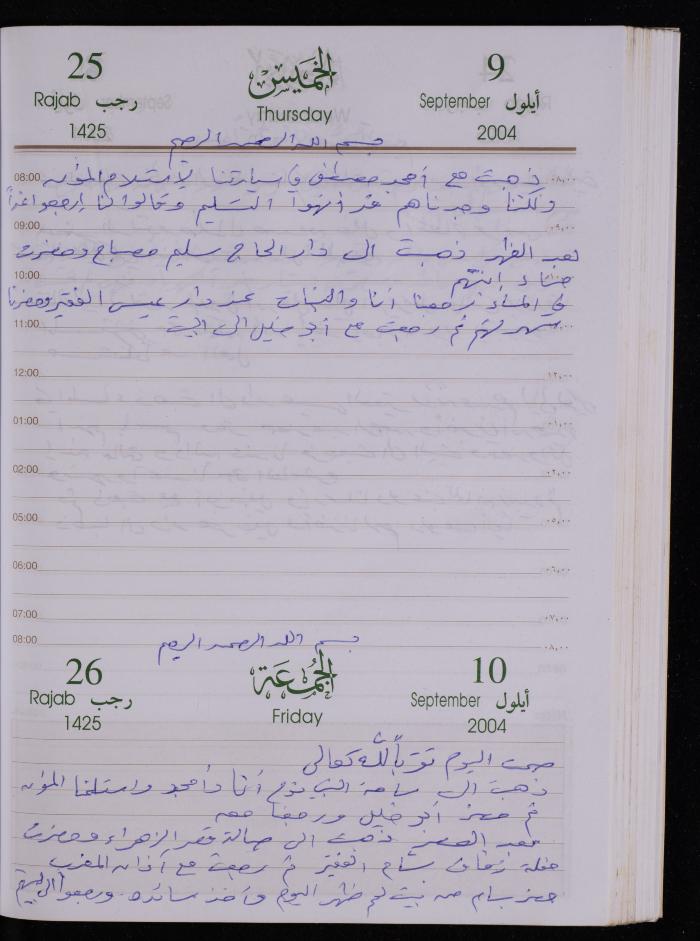 25 الخميس 9
Rajab رجب Thursday September أيلول
1425 2004
بسم الله الرحمن الرحيم
08:00 ذهبت مع أمجد مصطفى في سيارتنا لاستلام المؤن ٠٨,٠٠
ولكننا وجدناهم قد أنهوا التسليم وقالوا لنا إرجعوا غداً
09:00 ٠٩,٠٠
بعد الظهر ذهبت الى دار الحاج سليم مصباح وحضرت
10:00 حناء إبنتهم
في المساء رجعنا أنا والبنات عند دار عيسى الفقير وحضرنا
11:00 سهرتهم ثم رجعت مع أبو خليل الى البيت
12:00 ١٢,٠٠
01:00 ٠١,٠٠
02:00 ٠٢,٠٠
05:00 ٠٥,٠٠
06:00 ٠٦,٠٠
07:00 ٠٧,٠٠
08:00 بسم الله الرحمن الرحيم ٠٨,٠٠
26 الجمعة 10
Rajab رجب Friday September أيلول
1425 2004
صمت اليوم تقرباً لله تعالى
ذهبت الى ساحة أنا وأمجد واستلمنا المؤن
ثم حضر أبو خليل ورجعنا معه
بعد العصر ذهبت الى صالة قصر الزهراء وحضرت
حفلة زفاف الفقير ثم رجعت مع آذان المغرب
حضر بسام من بيت لحم ظهر اليوم وأخذ سائده ورجعوا الى بيتهم